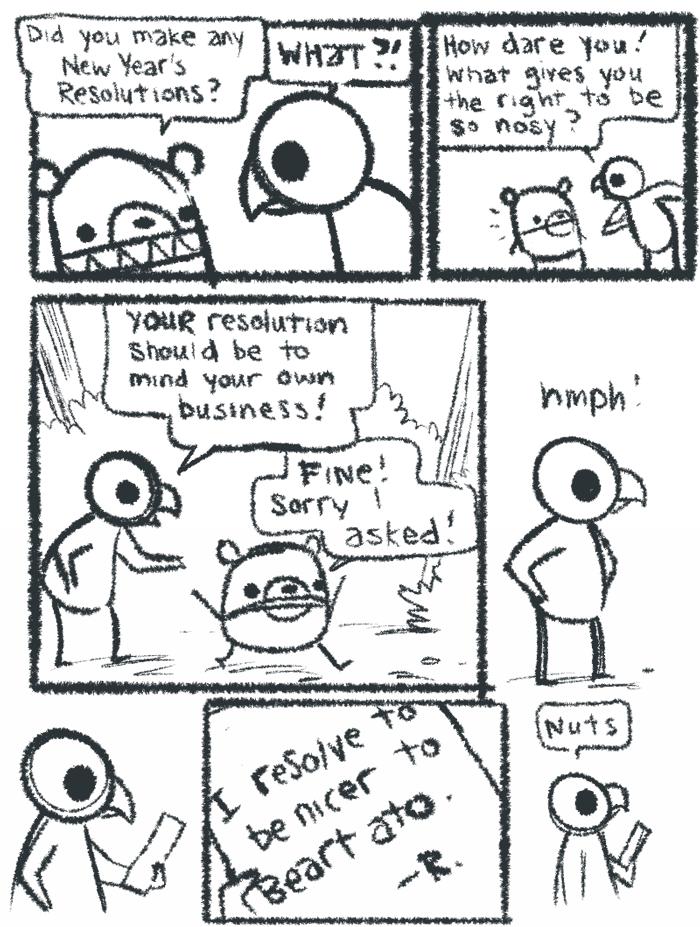 Did you make any
New Year's
Resolutions?
WHAT?!
How dare you!
What gives you
the right to be
so nosy?
YOUR resolution
should be to
mind your own
business!
FINE!
Sorry I
asked!
hmph!
I resolve to
be nicer to
Beart ato.
-R.
Nuts